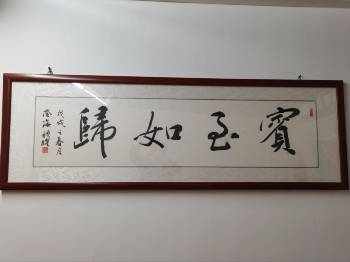 賓至如歸
戊戌之春月